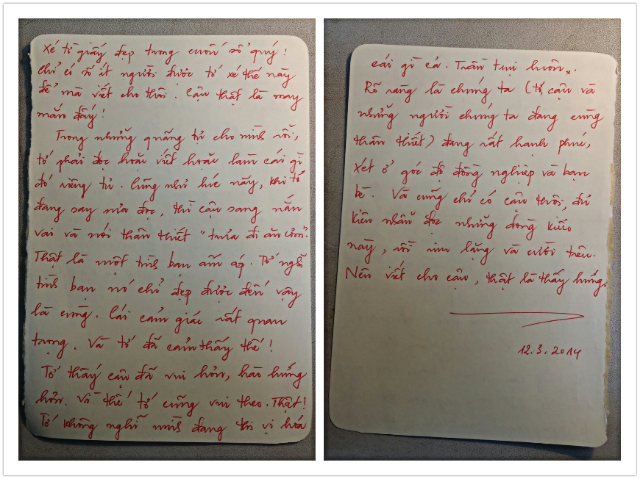 Xé tờ giấy đẹp trong cuốn sổ quý!
Chỉ có rất ít người được tớ xé thế này
để mà viết cho thôi! Cậu thật là may
mắn đấy!
Trong những quãng tự cho mình rồi,
tớ phải đọc hoặc viết hoặc làm cái gì
đó riêng tư. Cũng như lúc này, khi tớ
đang say sưa đọc, thì cậu sang nắn
vai và nói thân thiết "trưa đi ăn cơm".
Thật là một tình bạn ấm áp. Tớ nghĩ
tình bạn nó chỉ đẹp được đến vậy
là cùng. Cái cảm giác rất quan
trọng. Và tớ đã cảm thấy thế!
Tớ thấy cậu đã vui hơn, hào hứng
hơn. Vì thế tớ cũng vui theo. Thật!
Tớ không nghĩ mình đang thi vị hóa
cái gì cả. Trần trụi luôn.
Rõ ràng là chúng ta (tớ, cậu và
những người chúng ta đang cùng
thân thiết) đang rất hạnh phúc,
xét ở góc độ đồng nghiệp và bạn
bè. Và cũng chỉ có cậu thôi, đủ
kiên nhẫn đọc những dòng kiểu
này, rồi im lặng và cười trêu.
Nên viết cho cậu, thật là thấy hứng.
12.3.2014